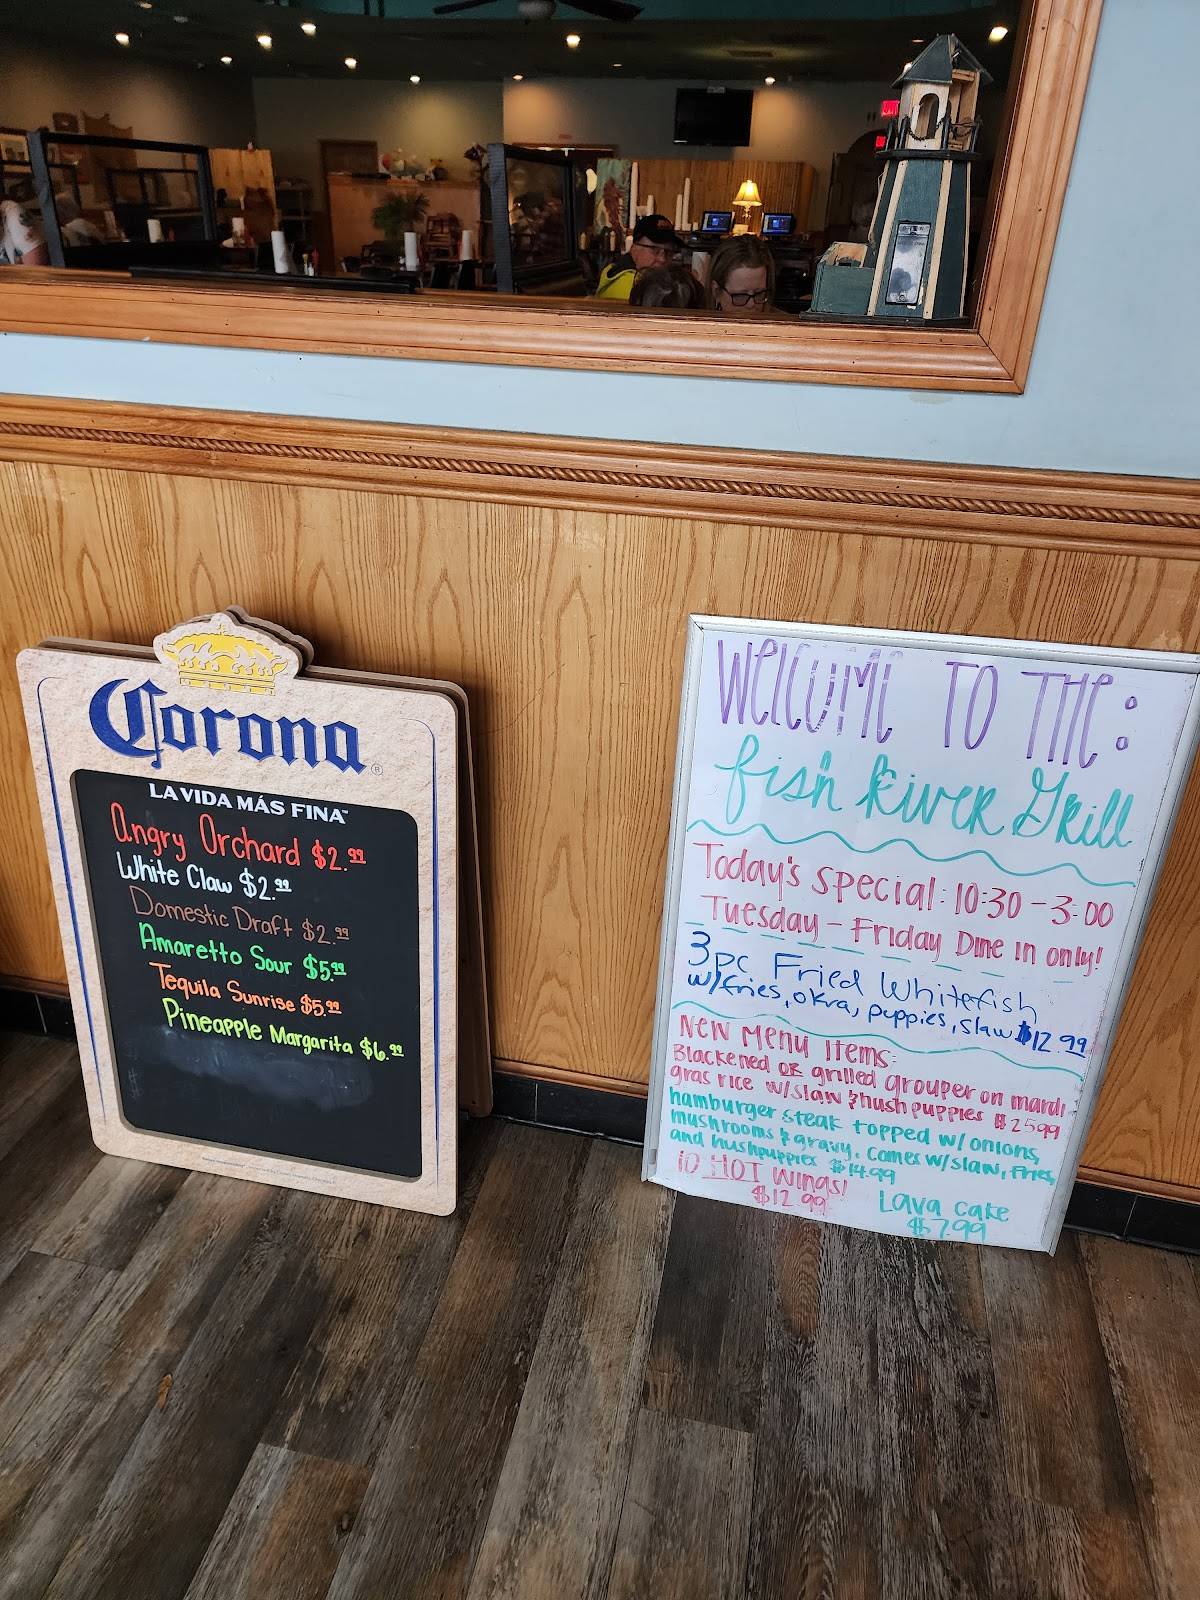 Corona
LA VIDA MÁS FINA
Angry Orchard $2.99
White Claw $2.99
Domestic Draft $2.99
Amaretto Sour $5.99
Tequila Sunrise $5.99
Pineapple Margarita $6.99
WelcOMe TO THe:
fish River Grill
Today's Special: 10:30 - 3:00
Tuesday - Friday Dine in only!
3 pc Fried Whitefish
w/fries, okra, puppies, slaw $12.99
New Menu Items:
Blackened OR grilled grouper on mardi
gras rice w/slaw & hushpuppies $25.99
hamburger steak topped w/ onions,
mushrooms & gravy. Comes w/slaw, fries,
and hushpuppies $14.99
10 HOT Wings!
$12.99
Lava cake
$7.99